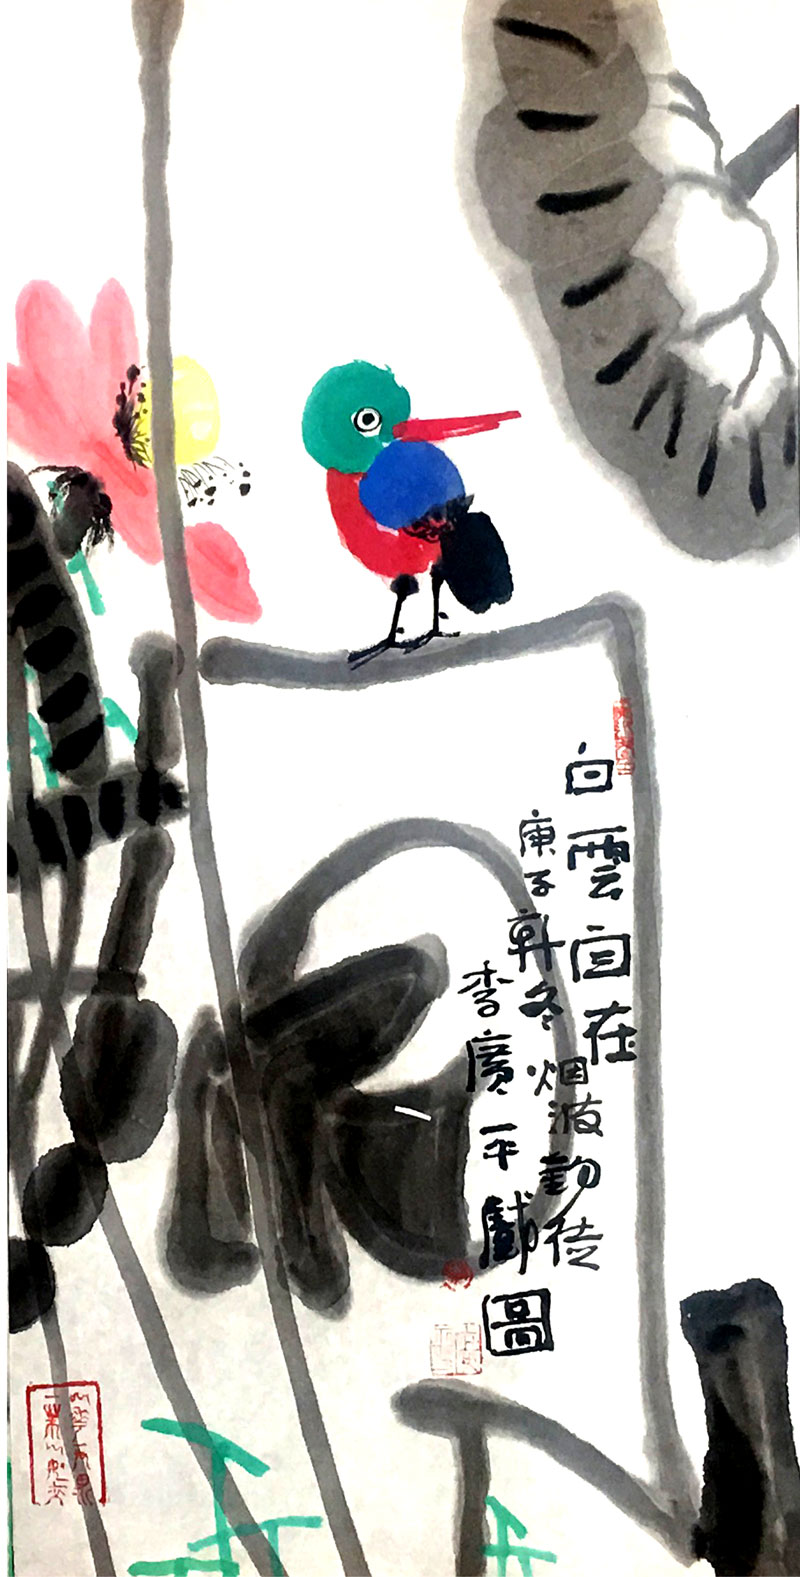 白雲自在
庚子冬烟波釣徒
李廣平戲圖